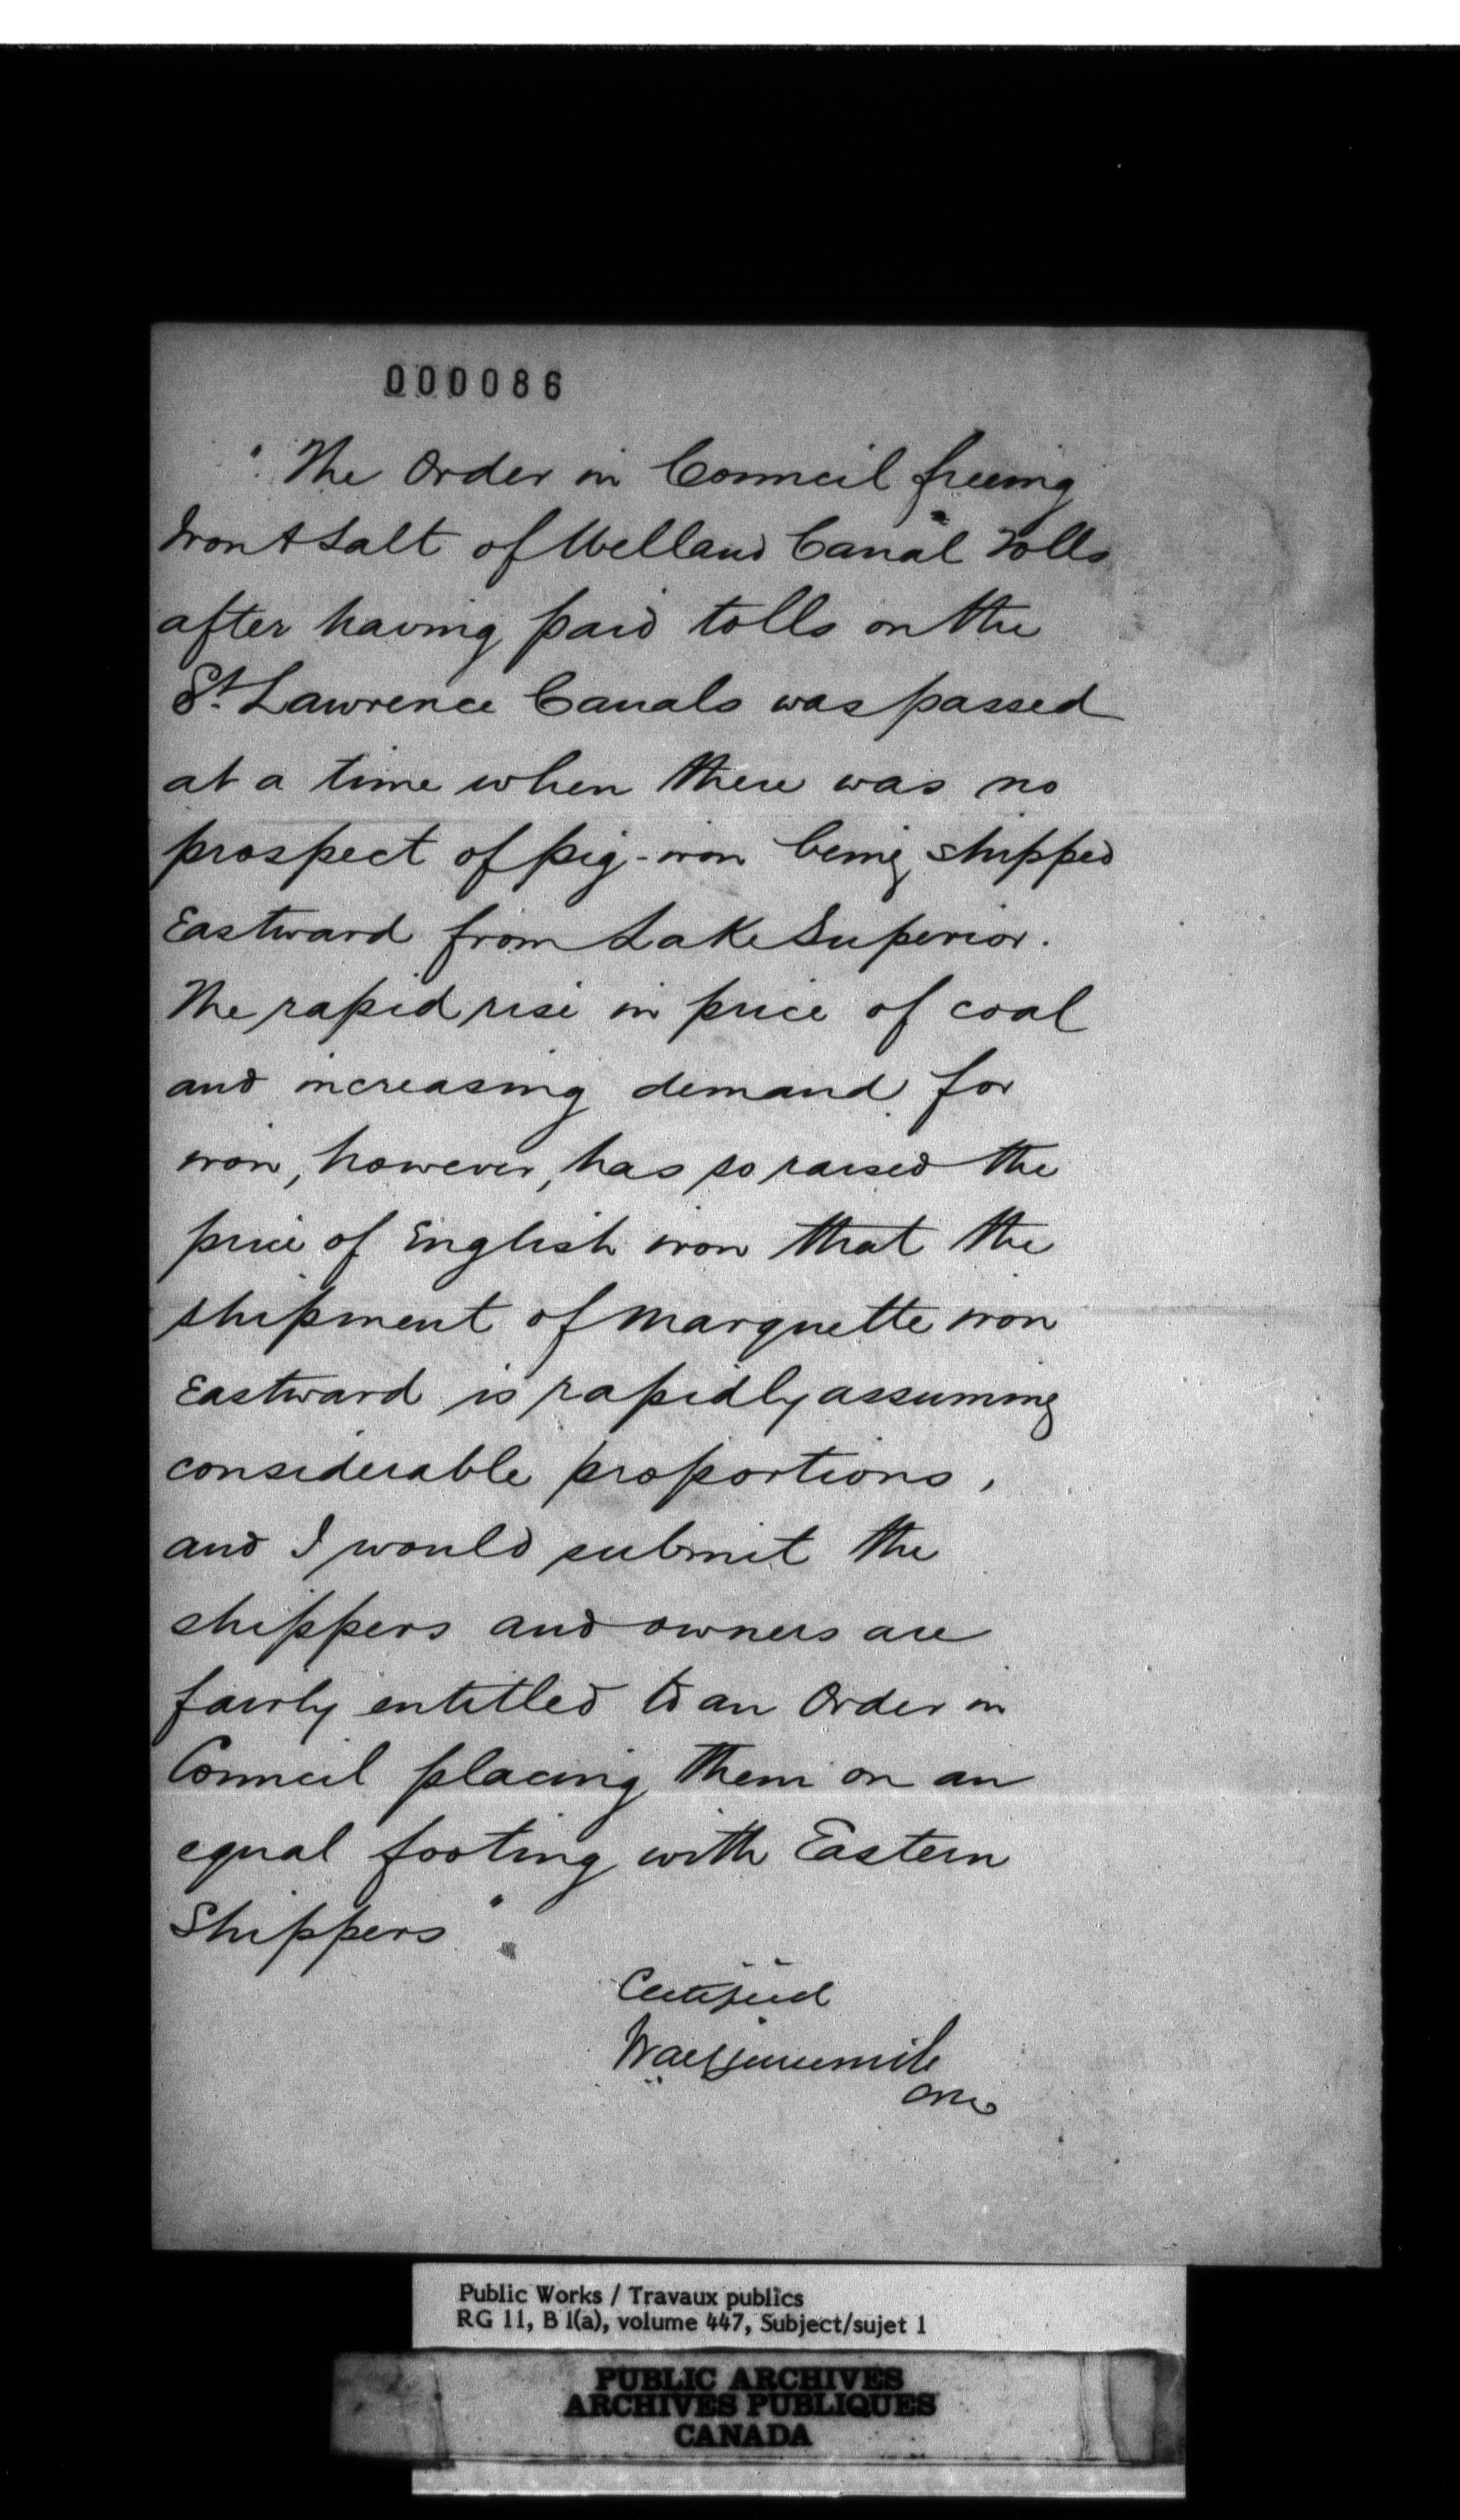 000086
" The Order in Council freeing
Iron & Salt of Welland Canal Tolls
after having paid tolls on the
St. Lawrence Canals was passed
at a time when there was no
prospect of pig-iron being shipped
Eastward from Lake Superior.
The rapid rise in price of coal
and increasing demand for
iron, however, has so raised the
price of English iron that the
shipment of Marquette iron
Eastward is rapidly assuming
considerable proportions,
and I would submit the
shippers and owners are
fairly entitled to an Order in
Council placing them on an
equal footing with Eastern
Shippers "
Certified
Public Works / Travaux publics
RG 11, B 1(a), volume 447, Subject/sujet 1
PUBLIC ARCHIVES
ARCHIVES PUBLIQUES
CANADA